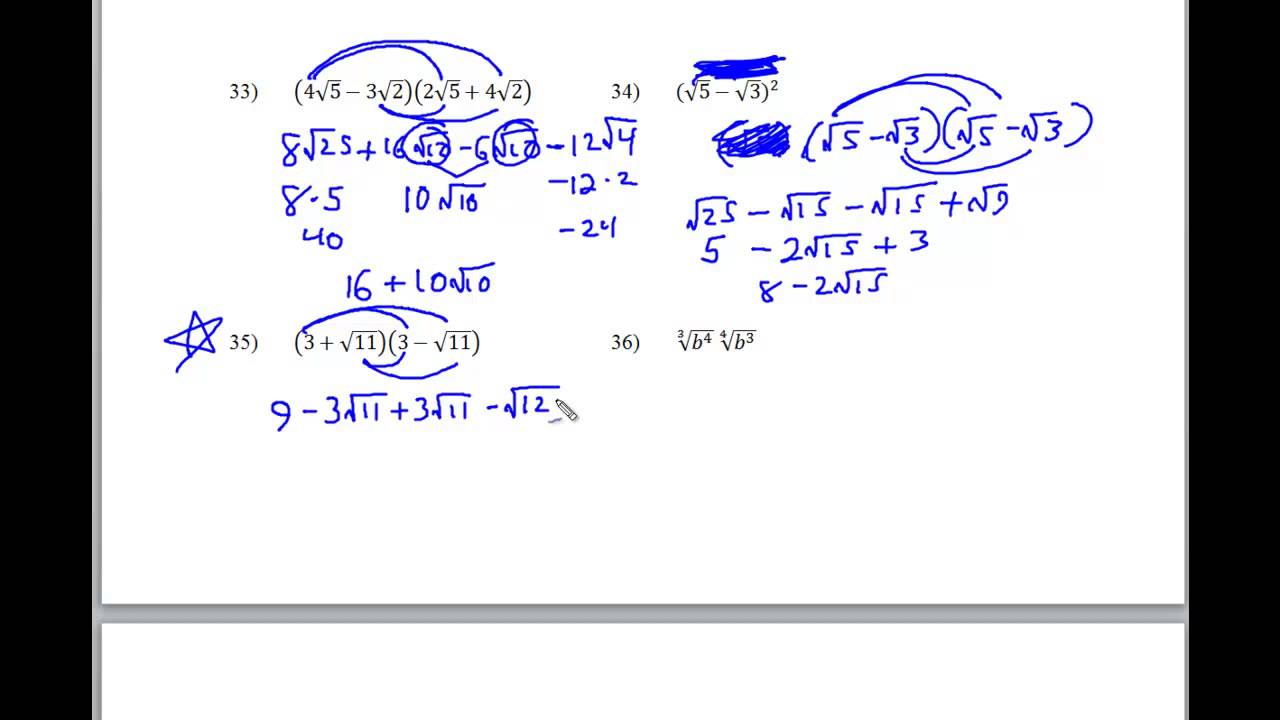 33) (4√5 − 3√2)(2√5 + 4√2)
8√25 + 16√10 − 6√10 − 12√4
8·5 10√10 −12·2
40 −24
16 + 10√10
34) (√5 − √3)²
(√5 − √3)(√5 − √3)
√25 − √15 − √15 + √9
5 − 2√15 + 3
8 − 2√15
35) (3 + √11)(3 − √11)
9 − 3√11 + 3√11 − √12
36) ∛b⁴ ∜b³